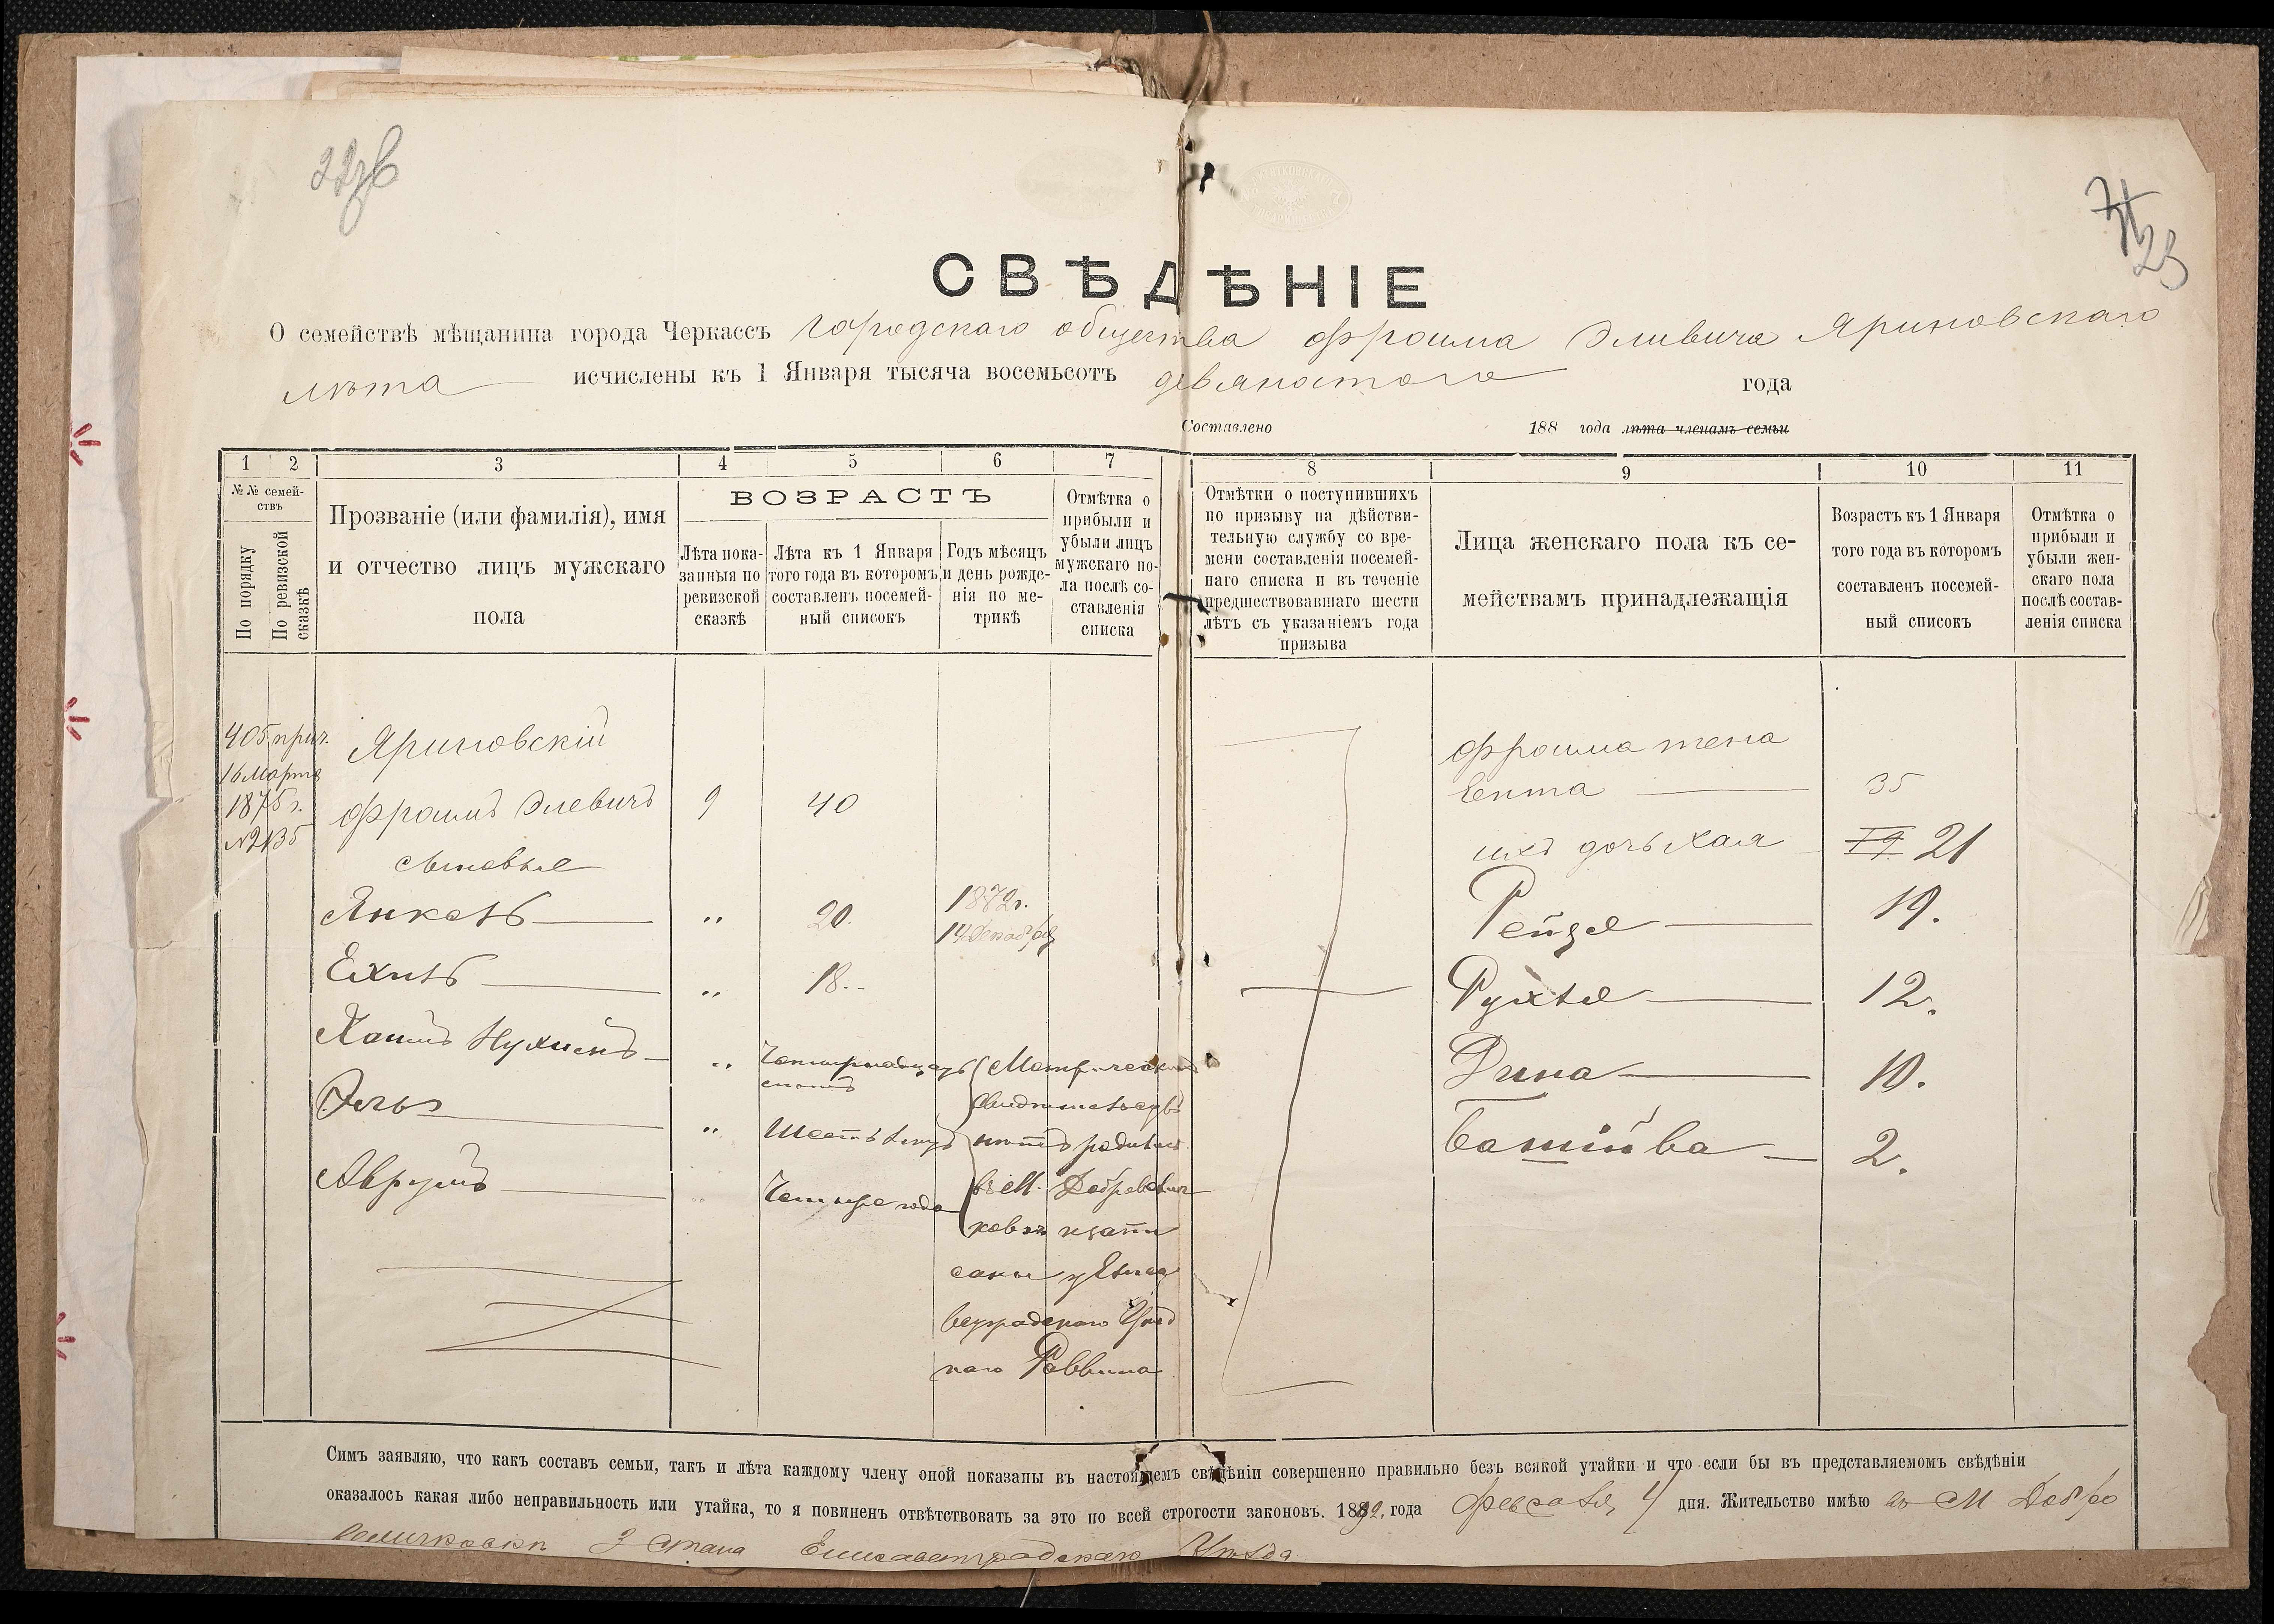 СВѢДѢНІЕ
О семействѣ мѣщанина города Черкассъ городскаго общества Фроима Эливича Яриновскаго
лѣта исчислены къ 1 Января тысяча восемьсотъ девяностого года
Составлено 188 года лѣта членамъ семьи
1 2 3 4 5 6 7 8 9 10 11
№№ семействъ
По порядку
По ревизской сказкѣ
Прозваніе (или фамилія), имя
и отчество лицъ мужскаго
пола
ВОЗРАСТЪ
Лѣта пока-
занныя по
ревизской
сказкѣ
Лѣта къ 1 Января
того года въ которомъ
составленъ посемей-
ный списокъ
Годъ мѣсяцъ
и день рожде-
нія по ме-
трикѣ
Отмѣтка о
прибыли и
убыли лицъ
мужскаго по-
ла послѣ со-
ставленія
списка
Отмѣтки о поступившихъ
по призыву на дѣйстви-
тельную службу со вре-
мени составленія посемей-
наго списка и въ теченіе
предшествовавшаго шести
лѣтъ съ указаніемъ года
призыва
Лица женскаго пола къ се-
мействамъ принадлежащія
Возрастъ къ 1 Января
того года въ которомъ
составленъ посемей-
ный списокъ
Отмѣтка о
прибыли и
убыли жен-
скаго пола
послѣ состав-
ленія списка
405 прич.
16 Марта
1875 г.
№2135
Яриновскій
Фроимъ Элевичъ 9 40
сыновья
Янкель " 20. 1872 г.
14 Декабря
Ехиль " 18.
Хаимъ Нухимъ "
Эль "
Аврумъ " Четыре года
Метрическія
въ М. Добровелич-
ковкѣ
саны у Елиса
ветградскаго Уѣзд
наго Раввина
Фроима жена
35
ихъ дочь Хая 19 21
Рейзя 19.
Рухля 12.
Дина 10.
Башива 2.
Симъ заявляю, что какъ составъ семьи, такъ и лѣта каждому члену оной показаны въ настоящемъ свѣдѣніи совершенно правильно безъ всякой утайки и что если бы въ представляемомъ свѣдѣніи
оказалось какая либо неправильность или утайка, то я повиненъ отвѣтствовать за это по всей строгости законовъ. 1892 года Февраля 4 дня. Жительство имѣю въ М Добро
величковкѣ 3 Стана Елисаветградскаго Уѣзда